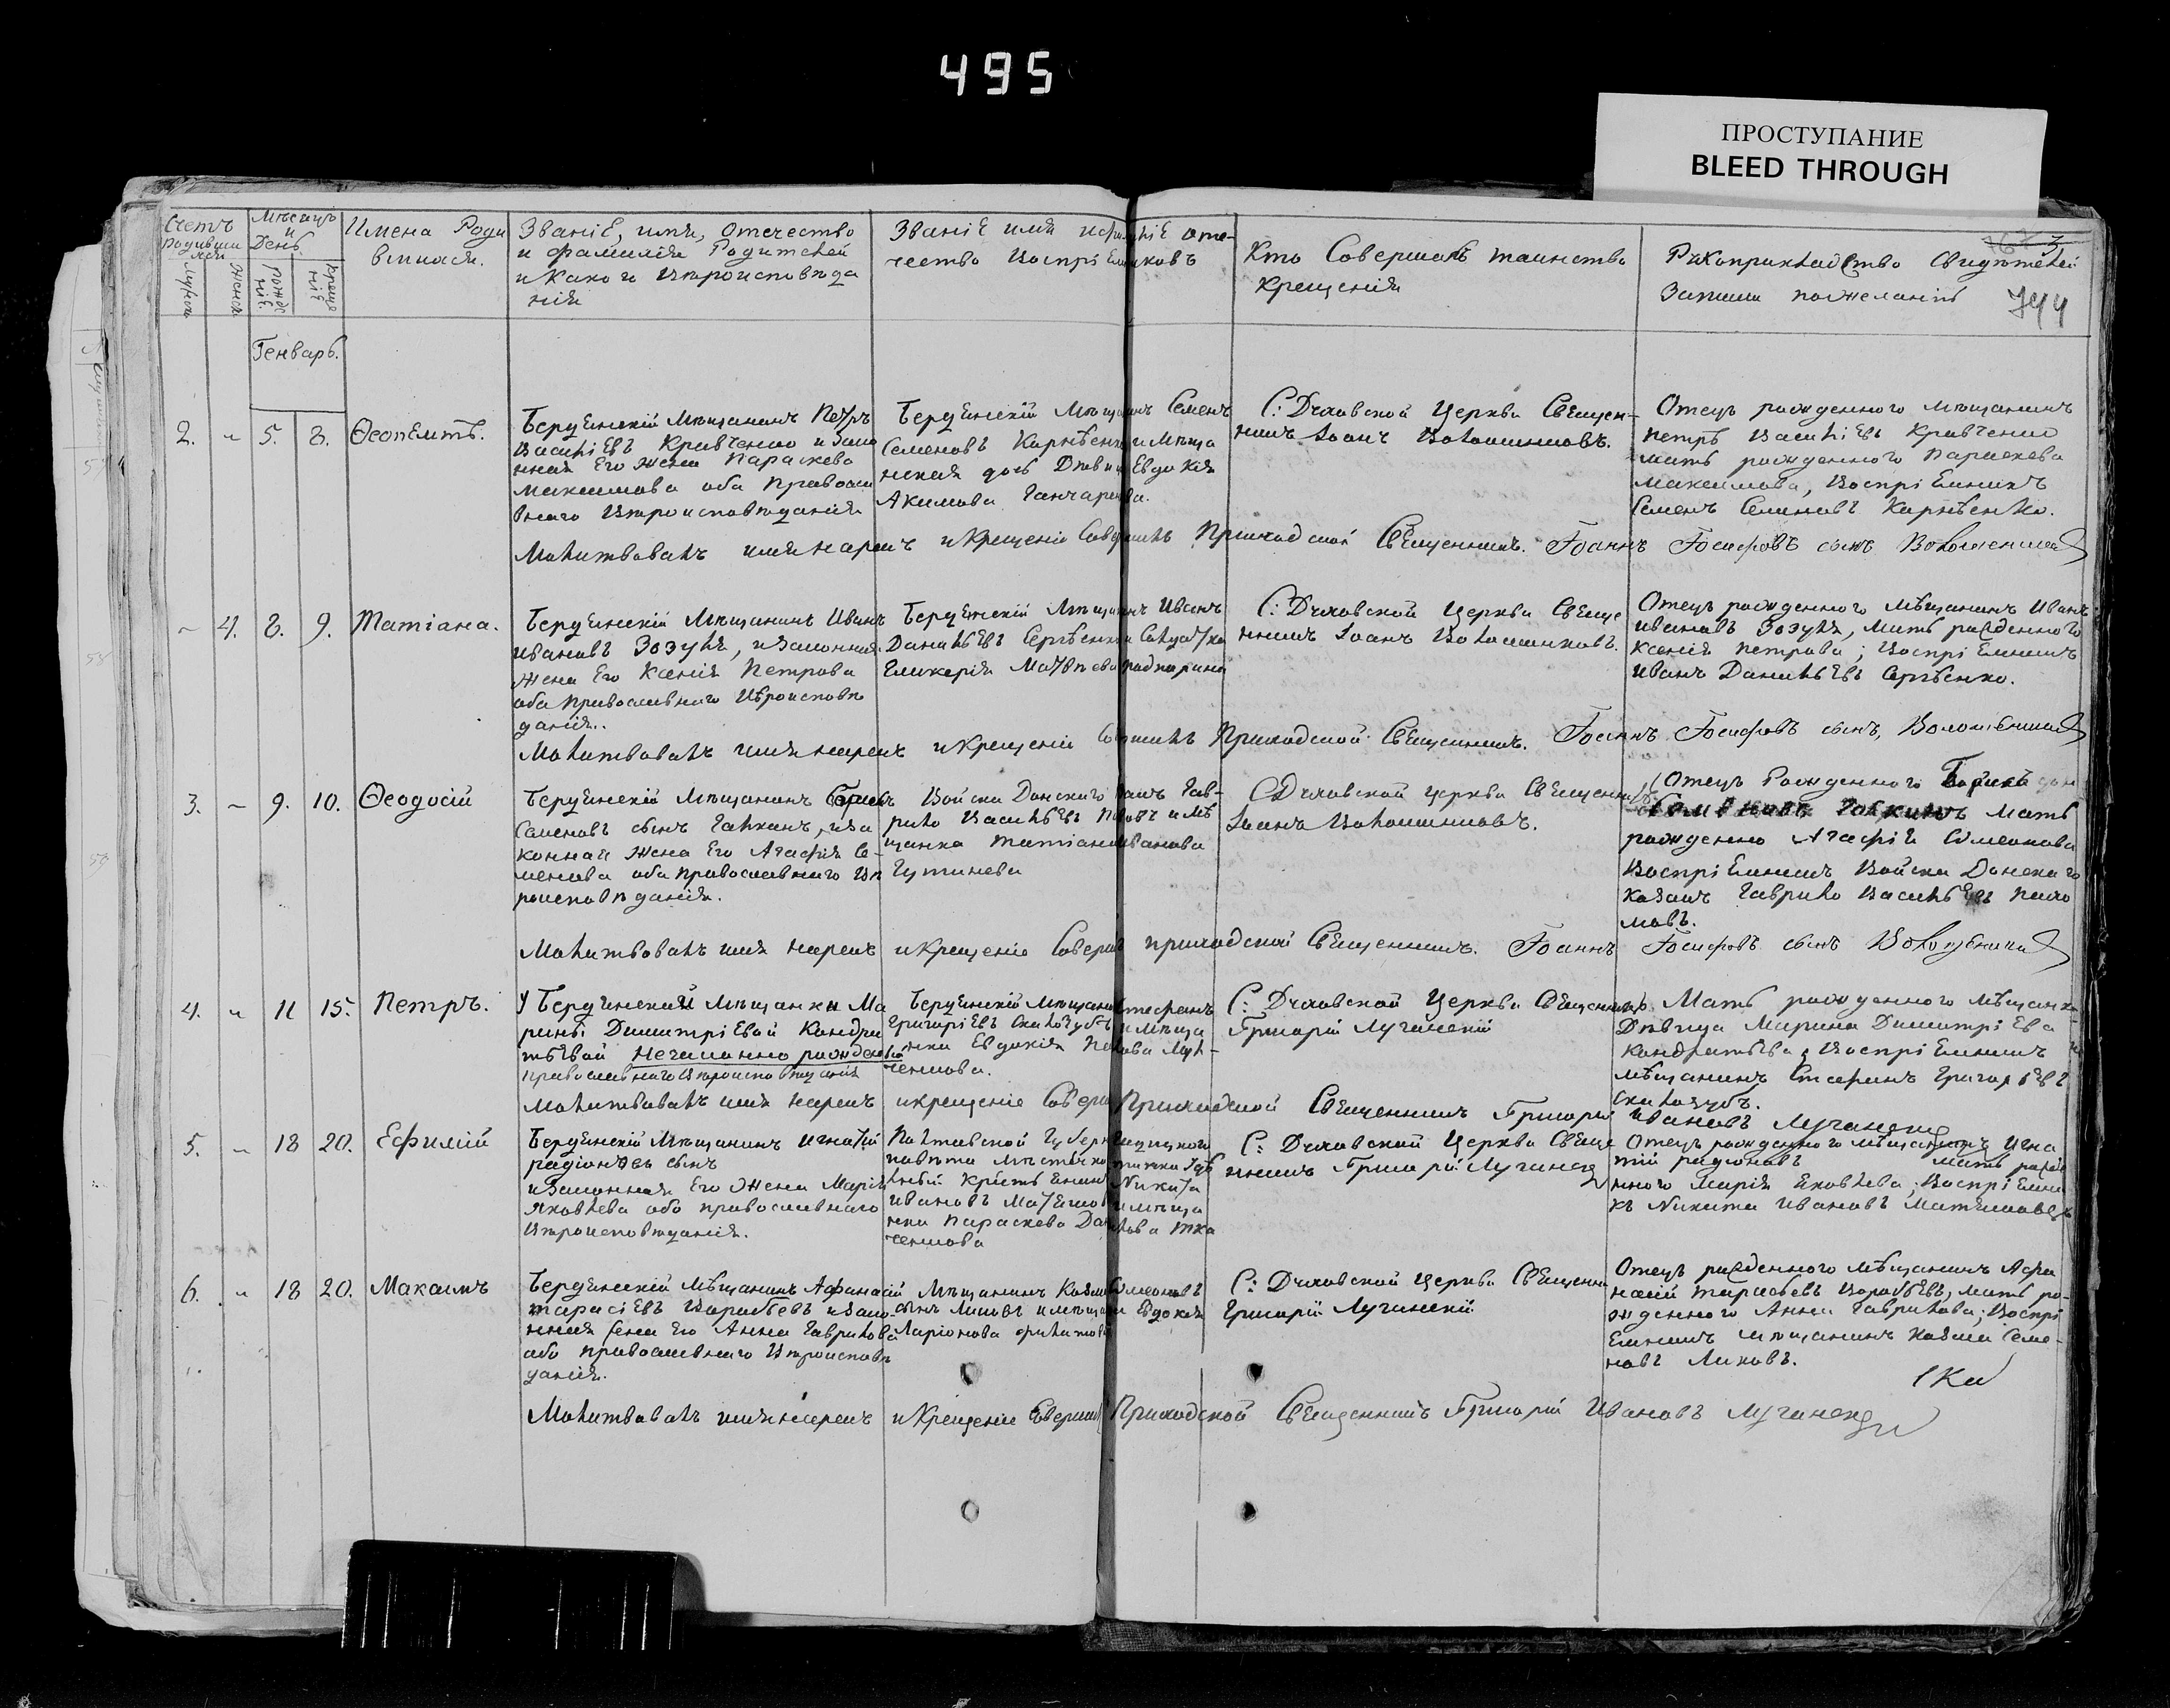 495
ПРОСТУПАНИЕ
BLEED THROUGH
Счетъ родившихся
Мужск
Женск
Мѣсяцъ и День
Рожденіе
Крещеніе
Имена Родившихся.
Званіе, имя, отечество
и фамилія Родителей
и Какого Вѣроисповѣда
нія
Званіе имя отечество Воспріемниковъ
Кто Совершалъ таинство
Крещенія
Рукоприкладство Свидѣтелей
Записи по желанію
3
744
Генварь.
2. " 5. 8. Ѳеопемптъ.
Бердянскій Мѣщанинъ Петръ
Васильевъ Кравченко и Зако
нная Его жена Параскева
Максимова оба Правосла
внаго Вѣроисповѣданія
Бердянскій Мѣщанинъ Семенъ
Семеновъ Карпѣенко и Мѣща
нская дочь Дѣвица Евдокія
Акимова Ганчарова.
С: Духовской Церкви Священ-
никъ Іоанъ Волошиновъ.
Отецъ рожденного мѣщанинъ
Петръ Васильевъ Кравченко
мать рожденного Параскева
Максимова, Воспріемникъ
Семенъ Семеновъ Карпѣенко.
Молитвовалъ имя нарекъ и Крещеніе Совершилъ Приходской Священникъ. Іоаннъ Іосифовъ сынъ
– 4. 8. 9. Татіана.
Бердянскій Мѣщанинъ Иванъ
Ивановъ Зозуля, и Законная
жена Его Ксенія Петрова
оба Православнаго Вѣроисповѣ
данія..
Бердянскій Мѣщанинъ Иванъ
Данильевъ Сергѣенко и Солдатка
Гликерія Матвѣева
С: Духовской Церкви Свяще
нникъ Іоанъ Волошиновъ.
Отецъ рожденного Мѣщанинъ Иванъ
Ивановъ Зозуля, Мать рожденного
Ксенія Петрова; Воспріемникъ
Иванъ Данильевъ Сергѣенко.
Молитвовалъ имя нарекъ и Крещеніе Совершилъ Приходской Священникъ. Іоаннъ Іосифовъ сынъ,
3. – 9. 10. Ѳеодосій
Бердянскій Мѣщанинъ Борисъ
Семеновъ сынъ Галкинъ, и За
конная жена Его Агафія Се-
менова оба православнаго Вѣ
роисповѣданія.
Войска Донскаго Казакъ Гав-
рило Васильевъ и мѣ
щанка Татіана Иванова
С Духовской церкви Священникъ
Іоанъ Волошиновъ.
Отецъ Рожденного Борисъ
Семеновъ Галкинъ Мать
рожденно Агафія Семенова
Воспріемникъ Войска Донскаго
Казакъ Гаврило Васильевъ
Молитвовалъ имя нарекъ и Крещеніе Соверш приходской Священникъ. Іоаннъ Іосифовъ сынъ
4. " 11 15. Петръ.
У Бердянской Мѣщанки Ма
рины Димитріевой Кондра
тьевой Незаконно рожденный
православнаго Вѣроисповѣданія
Бердянскій Мѣщанинъ Стефанъ
Григоріевъ Скалозубъ и Мѣща
нка Евдокія
С: Духовской Церкви Священникъ
Григорій Лучинскій
Мать рожденного Мѣщанка
Дѣвица Марина Димитріева
Кондратьева, Воспріемникъ
Мѣщанинъ Стефанъ Григорьевъ
Скалозубъ.
Молитвовалъ имя нарекъ и крещеніе Соверш Приходской Священникъ Григорій Ивановъ Лучинскій
5. " 18 20. Ефимій
Бердянскій Мѣщанинъ Игнатій
радіоновъ сынъ
и Законная Его Жена Марія
Яковлева оба православнаго
Вѣроисповѣданія.
Полтавской Губерніи
Никита
Ивановъ и мѣща
нка Параскева
С: Духовской Церкви Свяще
нникъ Григорій Лучинскій
Отецъ рожденного Мѣщанинъ Игна
тій радіоновъ мать рожде
нного Марія Яковлева, Воспріемни
къ Никита Ивановъ
6. " 18 20. Максимъ
Бердянскій Мѣщанинъ Афанасій
Тарасіевъ Воробьевъ и Зако
нная жена Его Анна Гаврилова
оба православнаго Вѣроисповѣ
данія.
Мѣщанинъ Козма Семеновъ
сынъ и мѣщанка Евдокія
Ларіонова
С: Духовской Церкви Священни
Григорій Лучинскій
Отецъ рожденного Мѣщанинъ Афа
насій Тарасьевъ Воробьевъ, Мать ро-
жденного Анна Гаврилова; Воспрі
емникъ мѣщанинъ Козма Семе-
новъ
Молитвовалъ имя нарекъ и Крещеніе Соверши Приходской Священникъ Григорій Ивановъ Лучинскій